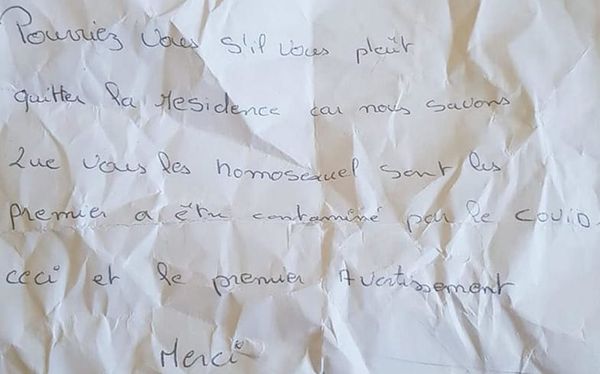 Pourriez vous s'il vous plaît
quitter la residence car nous savons
Que vous les homosexuel sont les
premier a être contaminé par le COVID.
ceci et le premier Avertissement
Merci